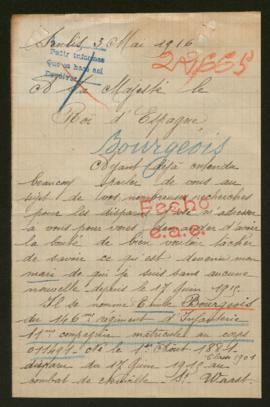 Senlis, 3 Mai 1916
Pedir informes
Que se hace así
291665
A Sa Majesté le
Roi d'Espagne
Bourgeois
Ayant déjà entendu
beaucoup parler de vous au
sujet de vos nombreuses recherches
pour les disparus, je m'adresse
à vous pour vous demander d'avoir
la bonté de bien vouloir tâcher
de savoir ce qu'est devenu mon
mari de qui je suis sans aucune
nouvelle depuis le 17 Juin 1915.
Fecho
e.a.e.
Il se nomme Emile Bourgeois
du 146me régiment d'Infanterie
11me compagnie matricule au corps
011491 - né le 1er Août 1881
Classe 1901
disparu du 17 Juin 1915 au
combat de Neuville - St Waast.